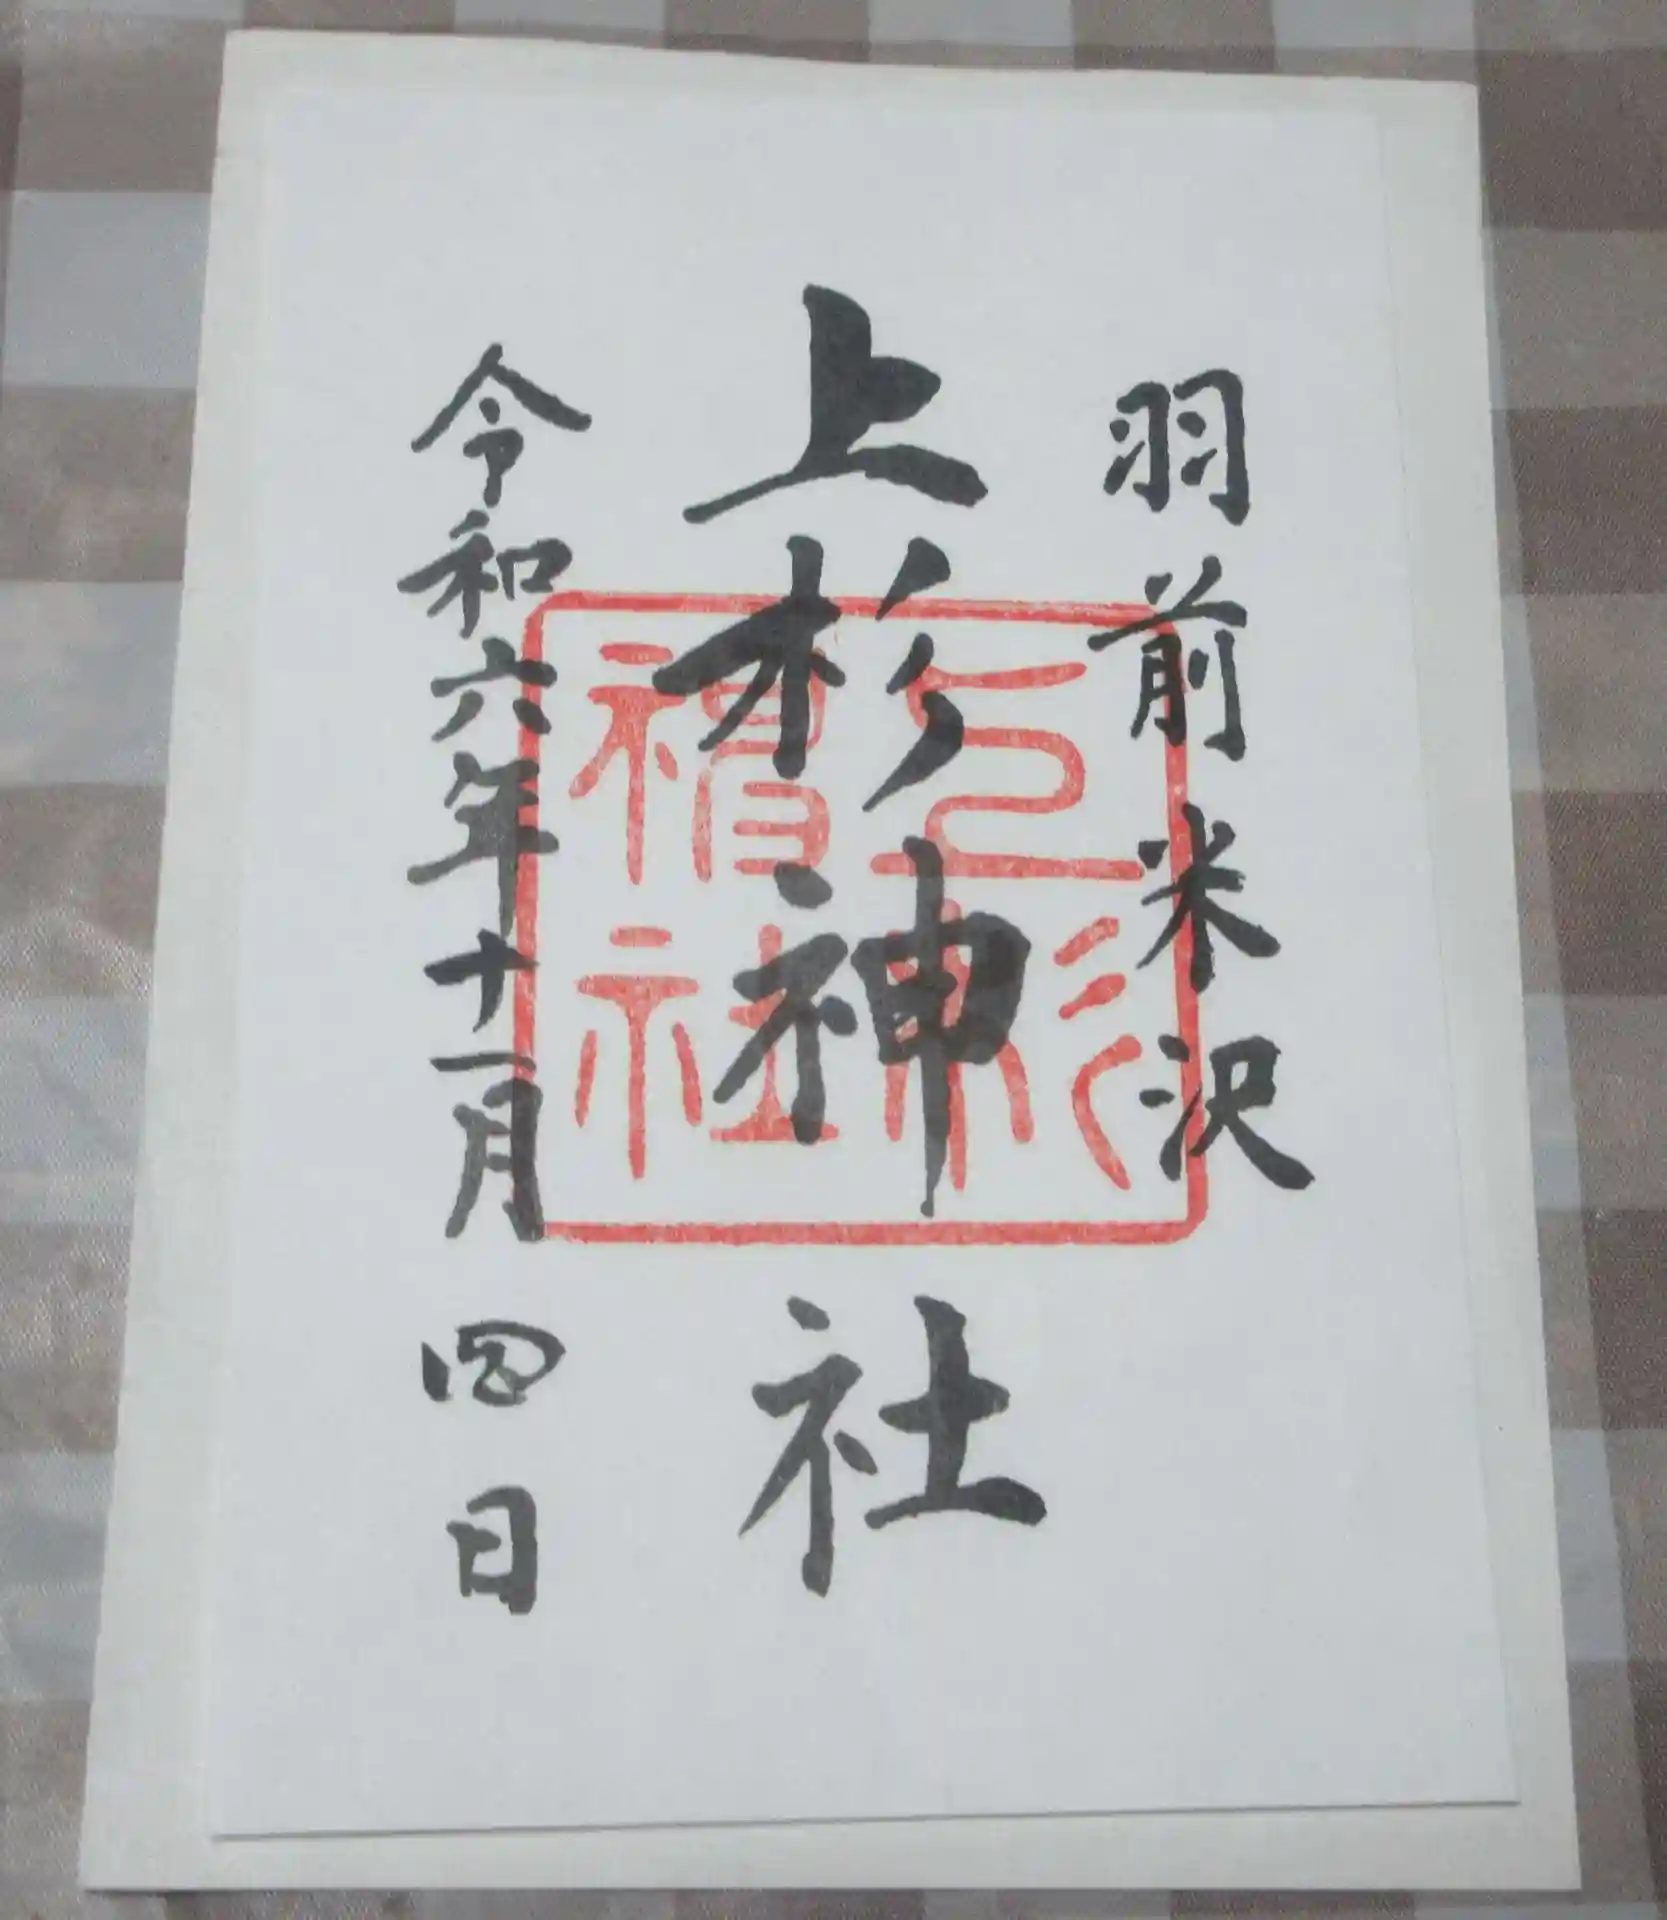 羽前米沢
上杉神社
令和六年十一月四日
上杉神社